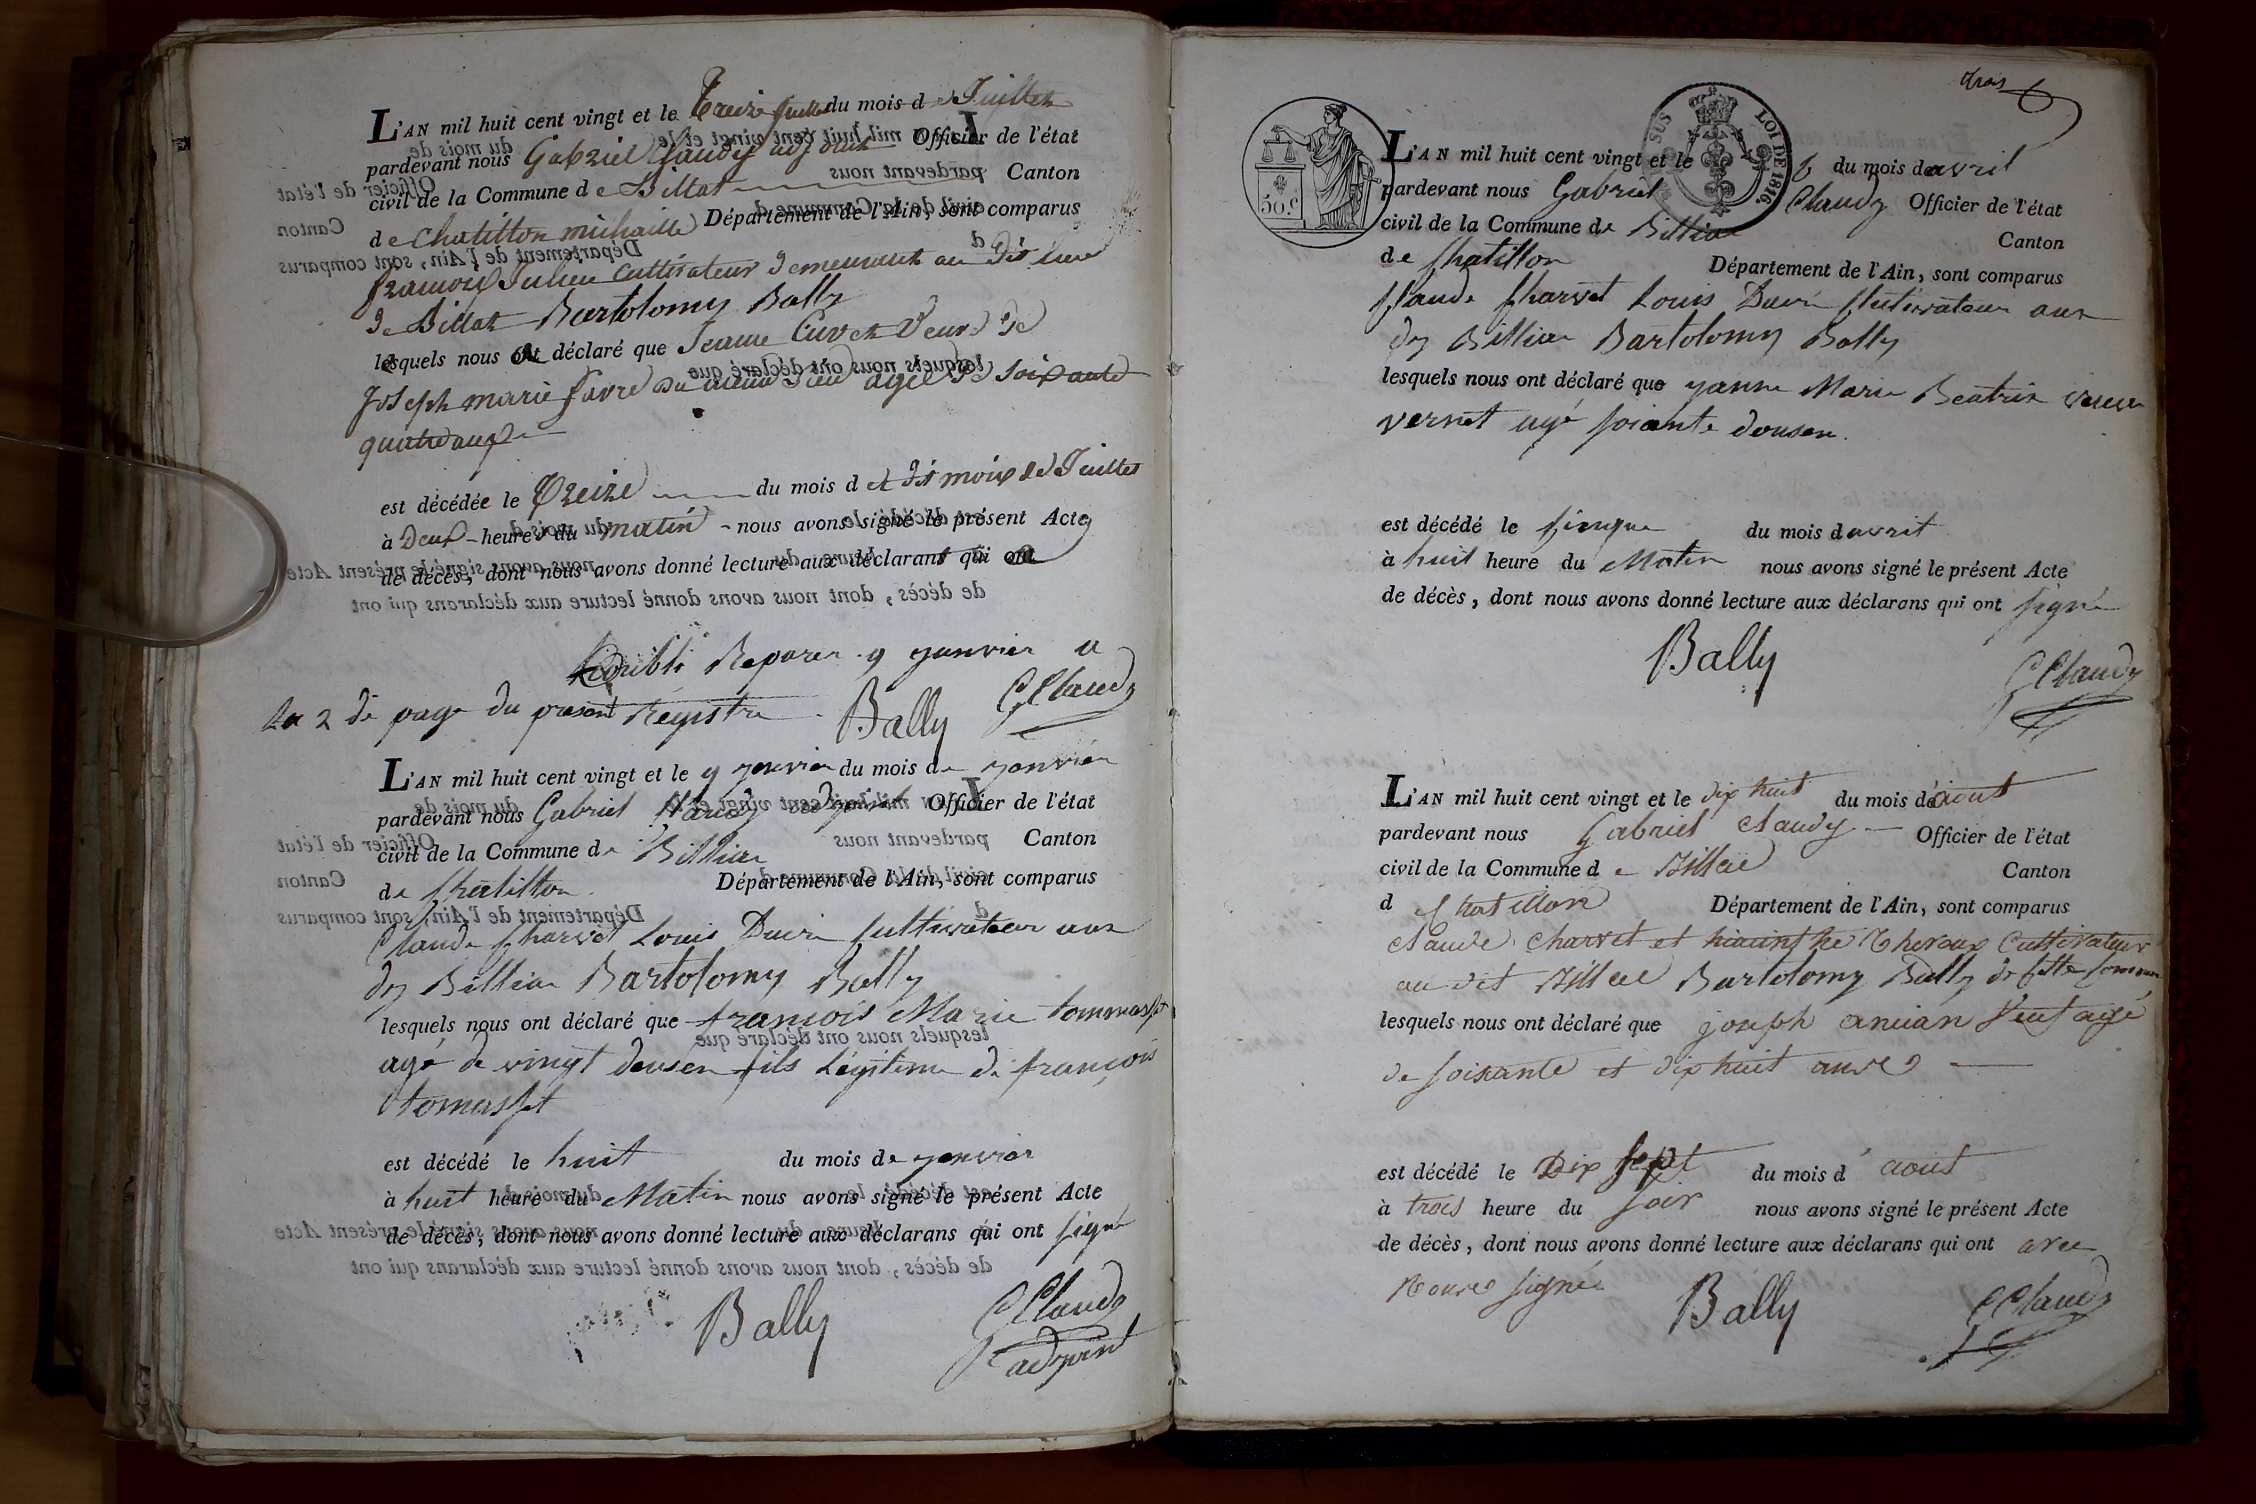 L'AN mil huit cent vingt et le Treize Juillet du mois de Juillet
pardevant nous Gabriel Claudy adjoint Officier de l'état
civil de la Commune de Billiat Canton
de Chatillon michaille Département de l'Ain, sont comparus
françois Julien Cultivateur demeurant au dit lieu
de Billiat Bartolomy Bally
lesquels nous ont déclaré que Jeanne Cuvet Veuve de
Joseph marie favre du même lieu agée de soixante
quatre ans
est décédée le Treize du mois d et dit mois de Juillet
à Deux heures du matin nous avons signé le présent Acte
de décès, dont nous avons donné lecture aux déclarans qui ont
Oublié Reporer 9 janvier a
La 2 de page du present Registre Bally GClaudy
L'AN mil huit cent vingt et le 9 janvier du mois de janvier
pardevant nous Gabriel Claudy adjoint Officier de l'état
civil de la Commune de Billia Canton
de Chatillon Département de l'Ain, sont comparus
Claude Charvet Louis Ducre Cultivateur aux
dy Billia Bartolomy Bally
lesquels nous ont déclaré que françois Marie tommasset
agé de vingt deusen fils Légitime de françois
tomasset
est décédé le huit du mois de janvier
à huit heure du Matin nous avons signé le présent Acte
de décès, dont nous avons donné lecture aux déclarans qui ont signé
Bally GClaudy
adjoint
trois
SUS LOI DE 1816.
50.c
L'AN mil huit cent vingt et le 6 du mois d avril
pardevant nous Gabriel Claudy Officier de l'état
civil de la Commune de Billia Canton
de Chatillon Département de l'Ain, sont comparus
Claude Charvet Louis Ducre Cultivateur aux
dy Billia Bartolomy Bally
lesquels nous ont déclaré que yanne Marie Beatrix veuve
vernet agé soiante dousen
est décédé le cinque du mois d avrit
à huit heure du Matin nous avons signé le présent Acte
de décès, dont nous avons donné lecture aux déclarans qui ont signé
Bally GClaudy
L'AN mil huit cent vingt et le dix huit du mois d'aout
pardevant nous Gabriel Claudy Officier de l'état
civil de la Commune de Billiat Canton
d Chatillon Département de l'Ain, sont comparus
Claude Charvet et hiacinthe Cultivateur
au dit Billiat Bartolomy Bally de cette Commune
lesquels nous ont déclaré que joseph ancian Veuf agé
de soixante et dix huit anés
est décédé le Dix sept du mois d' aout
à trois heure du soir nous avons signé le présent Acte
de décès, dont nous avons donné lecture aux déclarans qui ont avec
Nous signé Bally GClaudy